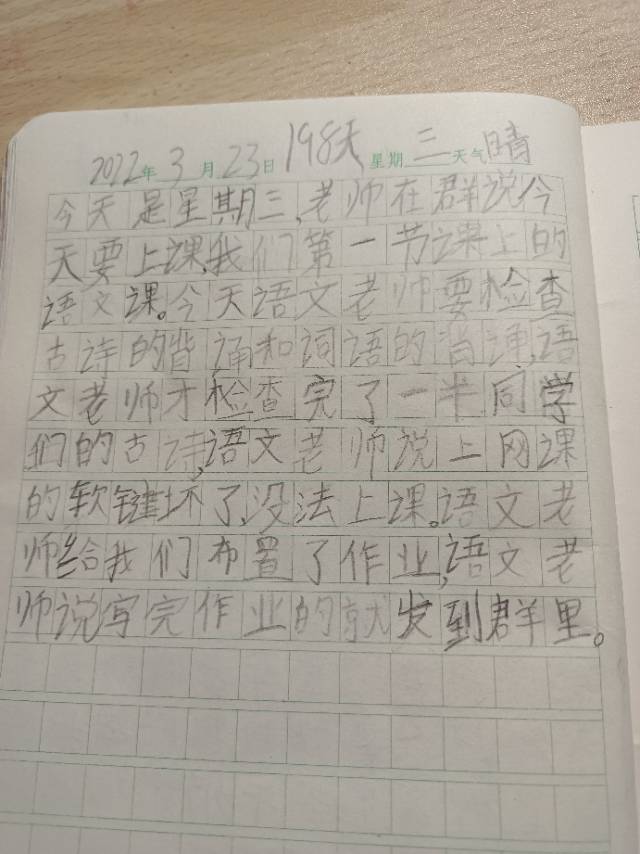 2022年3月23日 198天 星期三 天气晴
今天是星期三,老师在群说今
天要上课,我们第一节课上的
语文课。今天语文老师要检查
古诗的背诵和词语的背诵,语
文老师才检查完了一半同学
们的古诗,语文老师说上网课
的软键坏了,没法上课。语文老
师给我们布置了作业,语文老
师说写完作业的就发到群里。